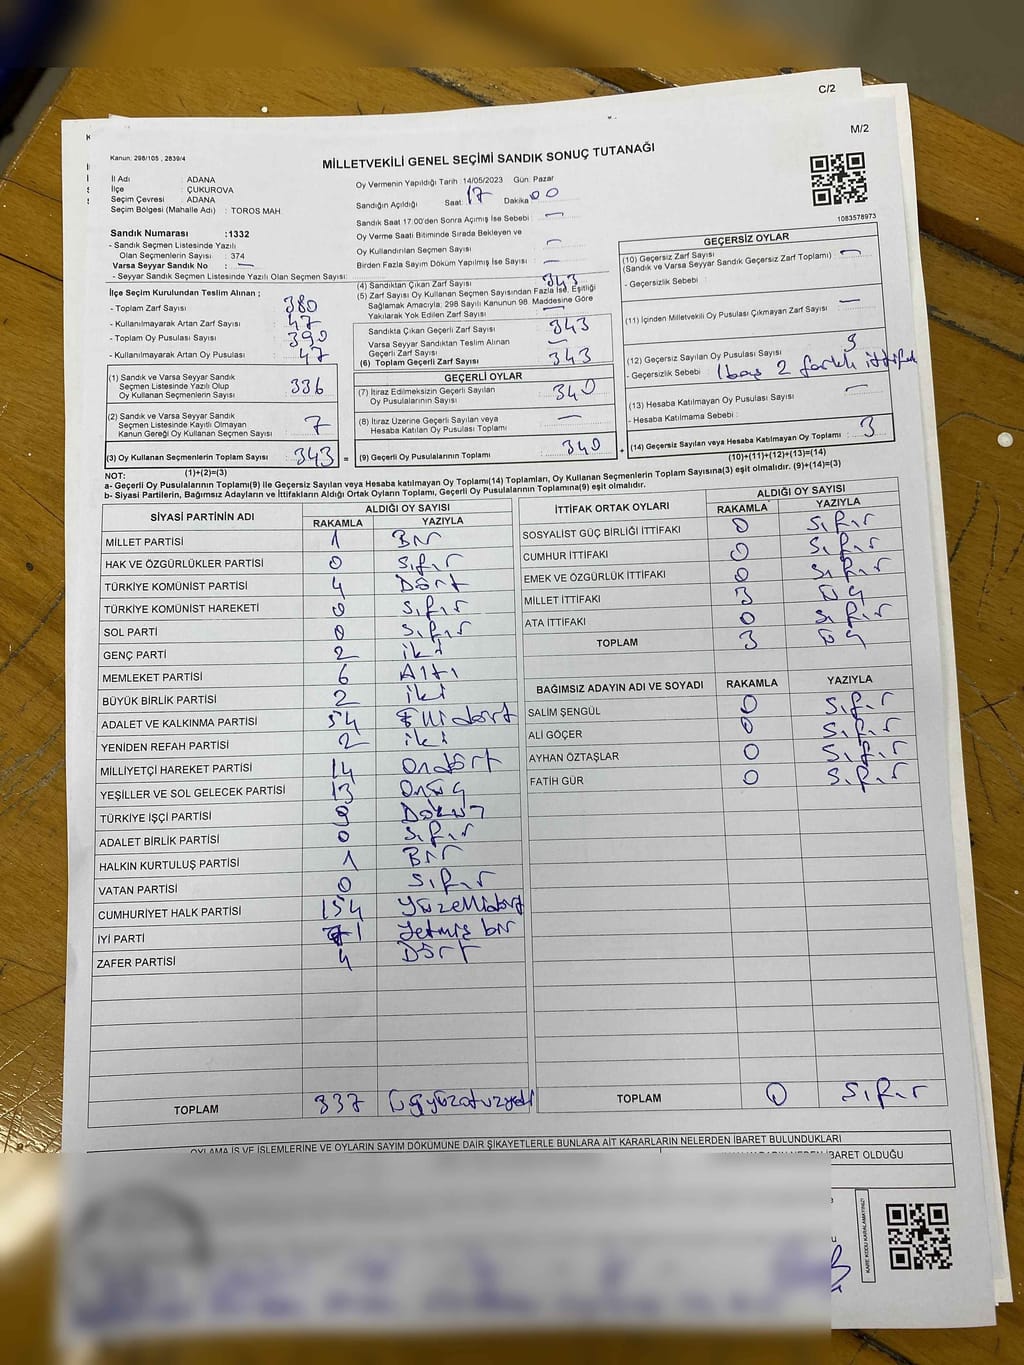 C/2
M/2
Kanun: 298/105 , 2839/4
MİLLETVEKİLİ GENEL SEÇİMİ SANDIK SONUÇ TUTANAĞI
1083578973
İl Adı : ADANA
İlçe : ÇUKUROVA
Seçim Çevresi : ADANA
Seçim Bölgesi (Mahalle Adı) : TOROS MAH.
Sandık Numarası :1332
- Sandık Seçmen Listesinde Yazılı
Olan Seçmenlerin Sayısı : 374
Varsa Seyyar Sandık No : —
- Seyyar Sandık Seçmen Listesinde Yazılı Olan Seçmen Sayısı:
Oy Vermenin Yapıldığı Tarih :14/05/2023 Gün: Pazar
Sandığın Açıldığı Saat: 17 Dakika: 00
Sandık Saat 17:00'den Sonra Açımış İse Sebebi : —
Oy Verme Saati Bitiminde Sırada Bekleyen ve
Oy Kullandırılan Seçmen Sayısı : —
Birden Fazla Sayım Döküm Yapılmış İse Sayısı : —
İlçe Seçim Kurulundan Teslim Alınan ;
- Toplam Zarf Sayısı : 380
- Kullanılmayarak Artan Zarf Sayısı : 47
- Toplam Oy Pusulası Sayısı : 390
- Kullanılmayarak Artan Oy Pusulası : 47
(1) Sandık ve Varsa Seyyar Sandık
Seçmen Listesinde Yazılı Olup
Oy Kullanan Seçmenlerin Sayısı : 336
(2) Sandık ve Varsa Seyyar Sandık
Seçmen Listesinde Kayıtlı Olmayan
Kanun Gereği Oy Kullanan Seçmen Sayısı : 7
(3) Oy Kullanan Seçmenlerin Toplam Sayısı : 343 =
(1)+(2)=(3)
(4) Sandıktan Çıkan Zarf Sayısı : 343
(5) Zarf Sayısı Oy Kullanan Seçmen Sayısından Fazla İse, Eşitliği
Sağlamak Amacıyla, 298 Sayılı Kanunun 98. Maddesine Göre
Yakılarak Yok Edilen Zarf Sayısı : —
Sandıkta Çıkan Geçerli Zarf Sayısı : 343
Varsa Seyyar Sandıktan Teslim Alınan
Geçerli Zarf Sayısı : —
(6) Toplam Geçerli Zarf Sayısı : 343
GEÇERLİ OYLAR
(7) İtiraz Edilmeksizin Geçerli Sayılan
Oy Pusulalarının Sayısı : 340
(8) İtiraz Üzerine Geçerli Sayılan veya
Hesaba Katılan Oy Pusulası Toplamı : —
(9) Geçerli Oy Pusulalarının Toplamı : 340 +
GEÇERSİZ OYLAR
(10) Geçersiz Zarf Sayısı
(Sandık ve Varsa Seyyar Sandık Geçersiz Zarf Toplamı) : —
- Geçersizlik Sebebi :
(11) İçinden Milletvekili Oy Pusulası Çıkmayan Zarf Sayısı : —
(12) Geçersiz Sayılan Oy Pusulası Sayısı : 3
- Geçersizlik Sebebi : 1 boş 2 farklı ittifak
(13) Hesaba Katılmayan Oy Pusulası Sayısı : —
- Hesaba Katılmama Sebebi :
(14) Geçersiz Sayılan veya Hesaba Katılmayan Oy Toplamı : 3
(10)+(11)+(12)+(13)=(14)
NOT:
a- Geçerli Oy Pusulalarının Toplamı(9) ile Geçersiz Sayılan veya Hesaba katılmayan Oy Toplamı(14) Toplamları, Oy Kullanan Seçmenlerin Toplam Sayısına(3) eşit olmalıdır. (9)+(14)=(3)
b- Siyasi Partilerin, Bağımsız Adayların ve İttifakların Aldığı Ortak Oyların Toplamı, Geçerli Oy Pusulalarının Toplamına(9) eşit olmalıdır.
SİYASİ PARTİNİN ADI ALDIĞI OY SAYISI
RAKAMLA YAZIYLA
MİLLET PARTİSİ 1 Bir
HAK VE ÖZGÜRLÜKLER PARTİSİ 0 Sıfır
TÜRKİYE KOMÜNİST PARTİSİ 4 Dört
TÜRKİYE KOMÜNİST HAREKETİ 0 Sıfır
SOL PARTİ 0 Sıfır
GENÇ PARTİ 2 iki
MEMLEKET PARTİSİ 6 Altı
BÜYÜK BİRLİK PARTİSİ 2 iki
ADALET VE KALKINMA PARTİSİ 54 Ellidört
YENİDEN REFAH PARTİSİ 2 iki
MİLLİYETÇİ HAREKET PARTİSİ 14 Ondört
YEŞİLLER VE SOL GELECEK PARTİSİ 13 Onüç
TÜRKİYE İŞÇİ PARTİSİ 9 Dokuz
ADALET BİRLİK PARTİSİ 0 Sıfır
HALKIN KURTULUŞ PARTİSİ 1 Bir
VATAN PARTİSİ 0 Sıfır
CUMHURİYET HALK PARTİSİ 154 Yüzellidört
İYİ PARTİ 71 Yetmiş bir
ZAFER PARTİSİ 4 Dört
TOPLAM 337 Üçyüzotuzyedi
İTTİFAK ORTAK OYLARI ALDIĞI OY SAYISI
RAKAMLA YAZIYLA
SOSYALİST GÜÇ BİRLİĞİ İTTİFAKI 0 Sıfır
CUMHUR İTTİFAKI 0 Sıfır
EMEK VE ÖZGÜRLÜK İTTİFAKI 0 Sıfır
MİLLET İTTİFAKI 3 Üç
ATA İTTİFAKI 0 Sıfır
TOPLAM 3 Üç
BAĞIMSIZ ADAYIN ADI VE SOYADI RAKAMLA YAZIYLA
SALİM ŞENGÜL 0 Sıfır
ALİ GÖÇER 0 Sıfır
AYHAN ÖZTAŞLAR 0 Sıfır
FATİH GÜR 0 Sıfır
TOPLAM 0 Sıfır
OYLAMA İŞ VE İŞLEMLERİNE VE OYLARIN SAYIM DÖKÜMÜNE DAİR ŞİKAYETLERLE BUNLARA AİT KARARLARIN NELERDEN İBARET BULUNDUKLARI
İBARET OLDUĞU
KARE KODU KARALAMAYINIZ!